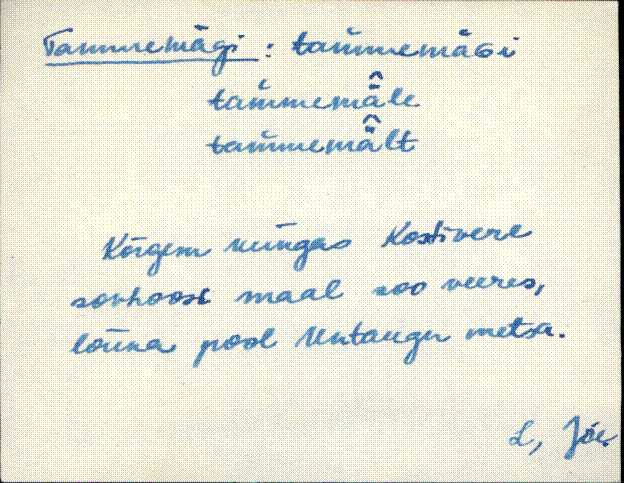 Tammemägi : tam̆memäGi
tam̆memä̆̂le
tam̆memä̆̂lt
Kõrgem küngas Kostivere
sovhoosi maal soo veeres,
lõuna pool Untaugu metsa.
L, Jõe